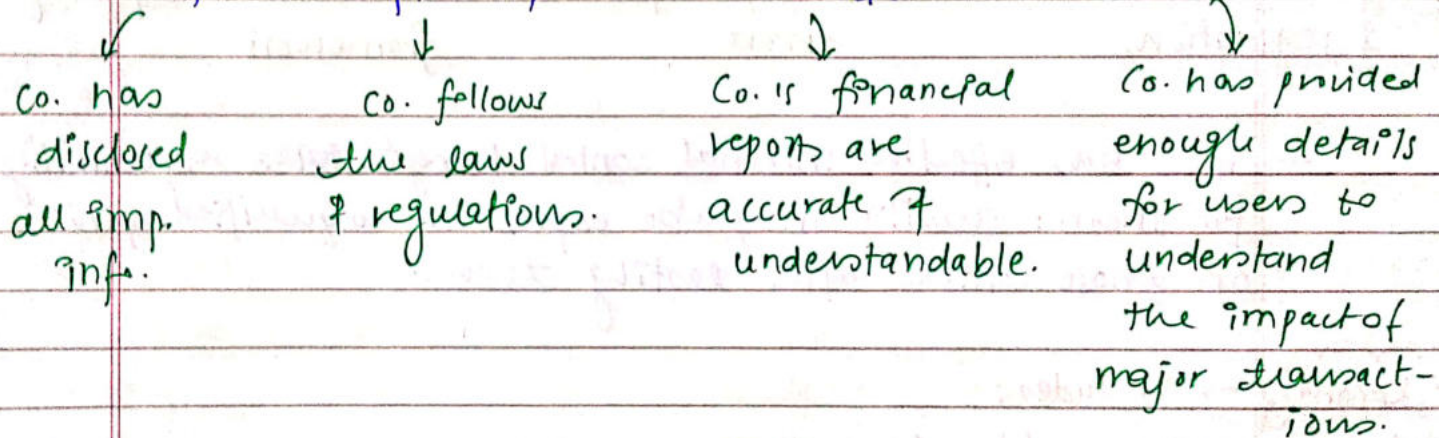 Co. has
disclosed
all imp.
inf.
co. follows
the laws
& regulations.
Co. is financial
reports are
accurate &
understandable.
Co. has provided
enough details
for users to
understand
the impact of
major transact-
ions.